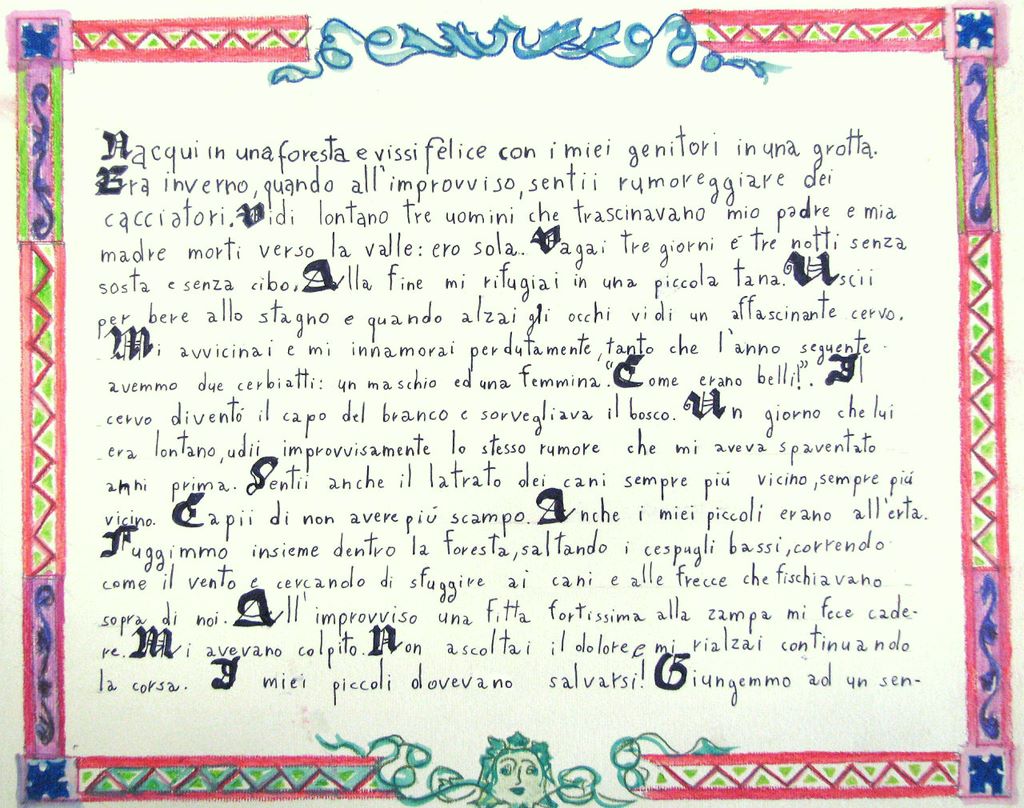 Nacqui in una foresta e vissi felice con i miei genitori in una grotta.
Era inverno, quando all'improvviso, sentii rumoreggiare dei
cacciatori. Vidi lontano tre uomini che trascinavano mio padre e mia
madre morti verso la valle: ero sola. Vagai tre giorni e tre notti senza
sosta e senza cibo. Alla fine mi rifugiai in una piccola tana. Uscii
per bere allo stagno e quando alzai gli occhi vidi un affascinante cervo.
Mi avvicinai e mi innamorai perdutamente, tanto che l'anno seguente
avemmo due cerbiatti: un maschio ed una femmina. "Come erano belli!". Il
cervo diventó il capo del branco e sorvegliava il bosco. Un giorno che lui
era lontano, udii improvvisamente lo stesso rumore che mi aveva spaventato
anni prima. Sentii anche il latrato dei cani sempre piú vicino, sempre piú
vicino. Capii di non avere piú scampo. Anche i miei piccoli erano all'erta.
Fuggimmo insieme dentro la foresta, saltando i cespugli bassi, correndo
come il vento e cercando di sfuggire ai cani e alle frecce che fischiavano
sopra di noi. All'improvviso una fitta fortissima alla zampa mi fece cade-
re. Mi avevano colpito. Non ascoltai il dolore e mi rialzai continuando
la corsa. I miei piccoli dovevano salvarsi! Giungemmo ad un sen-